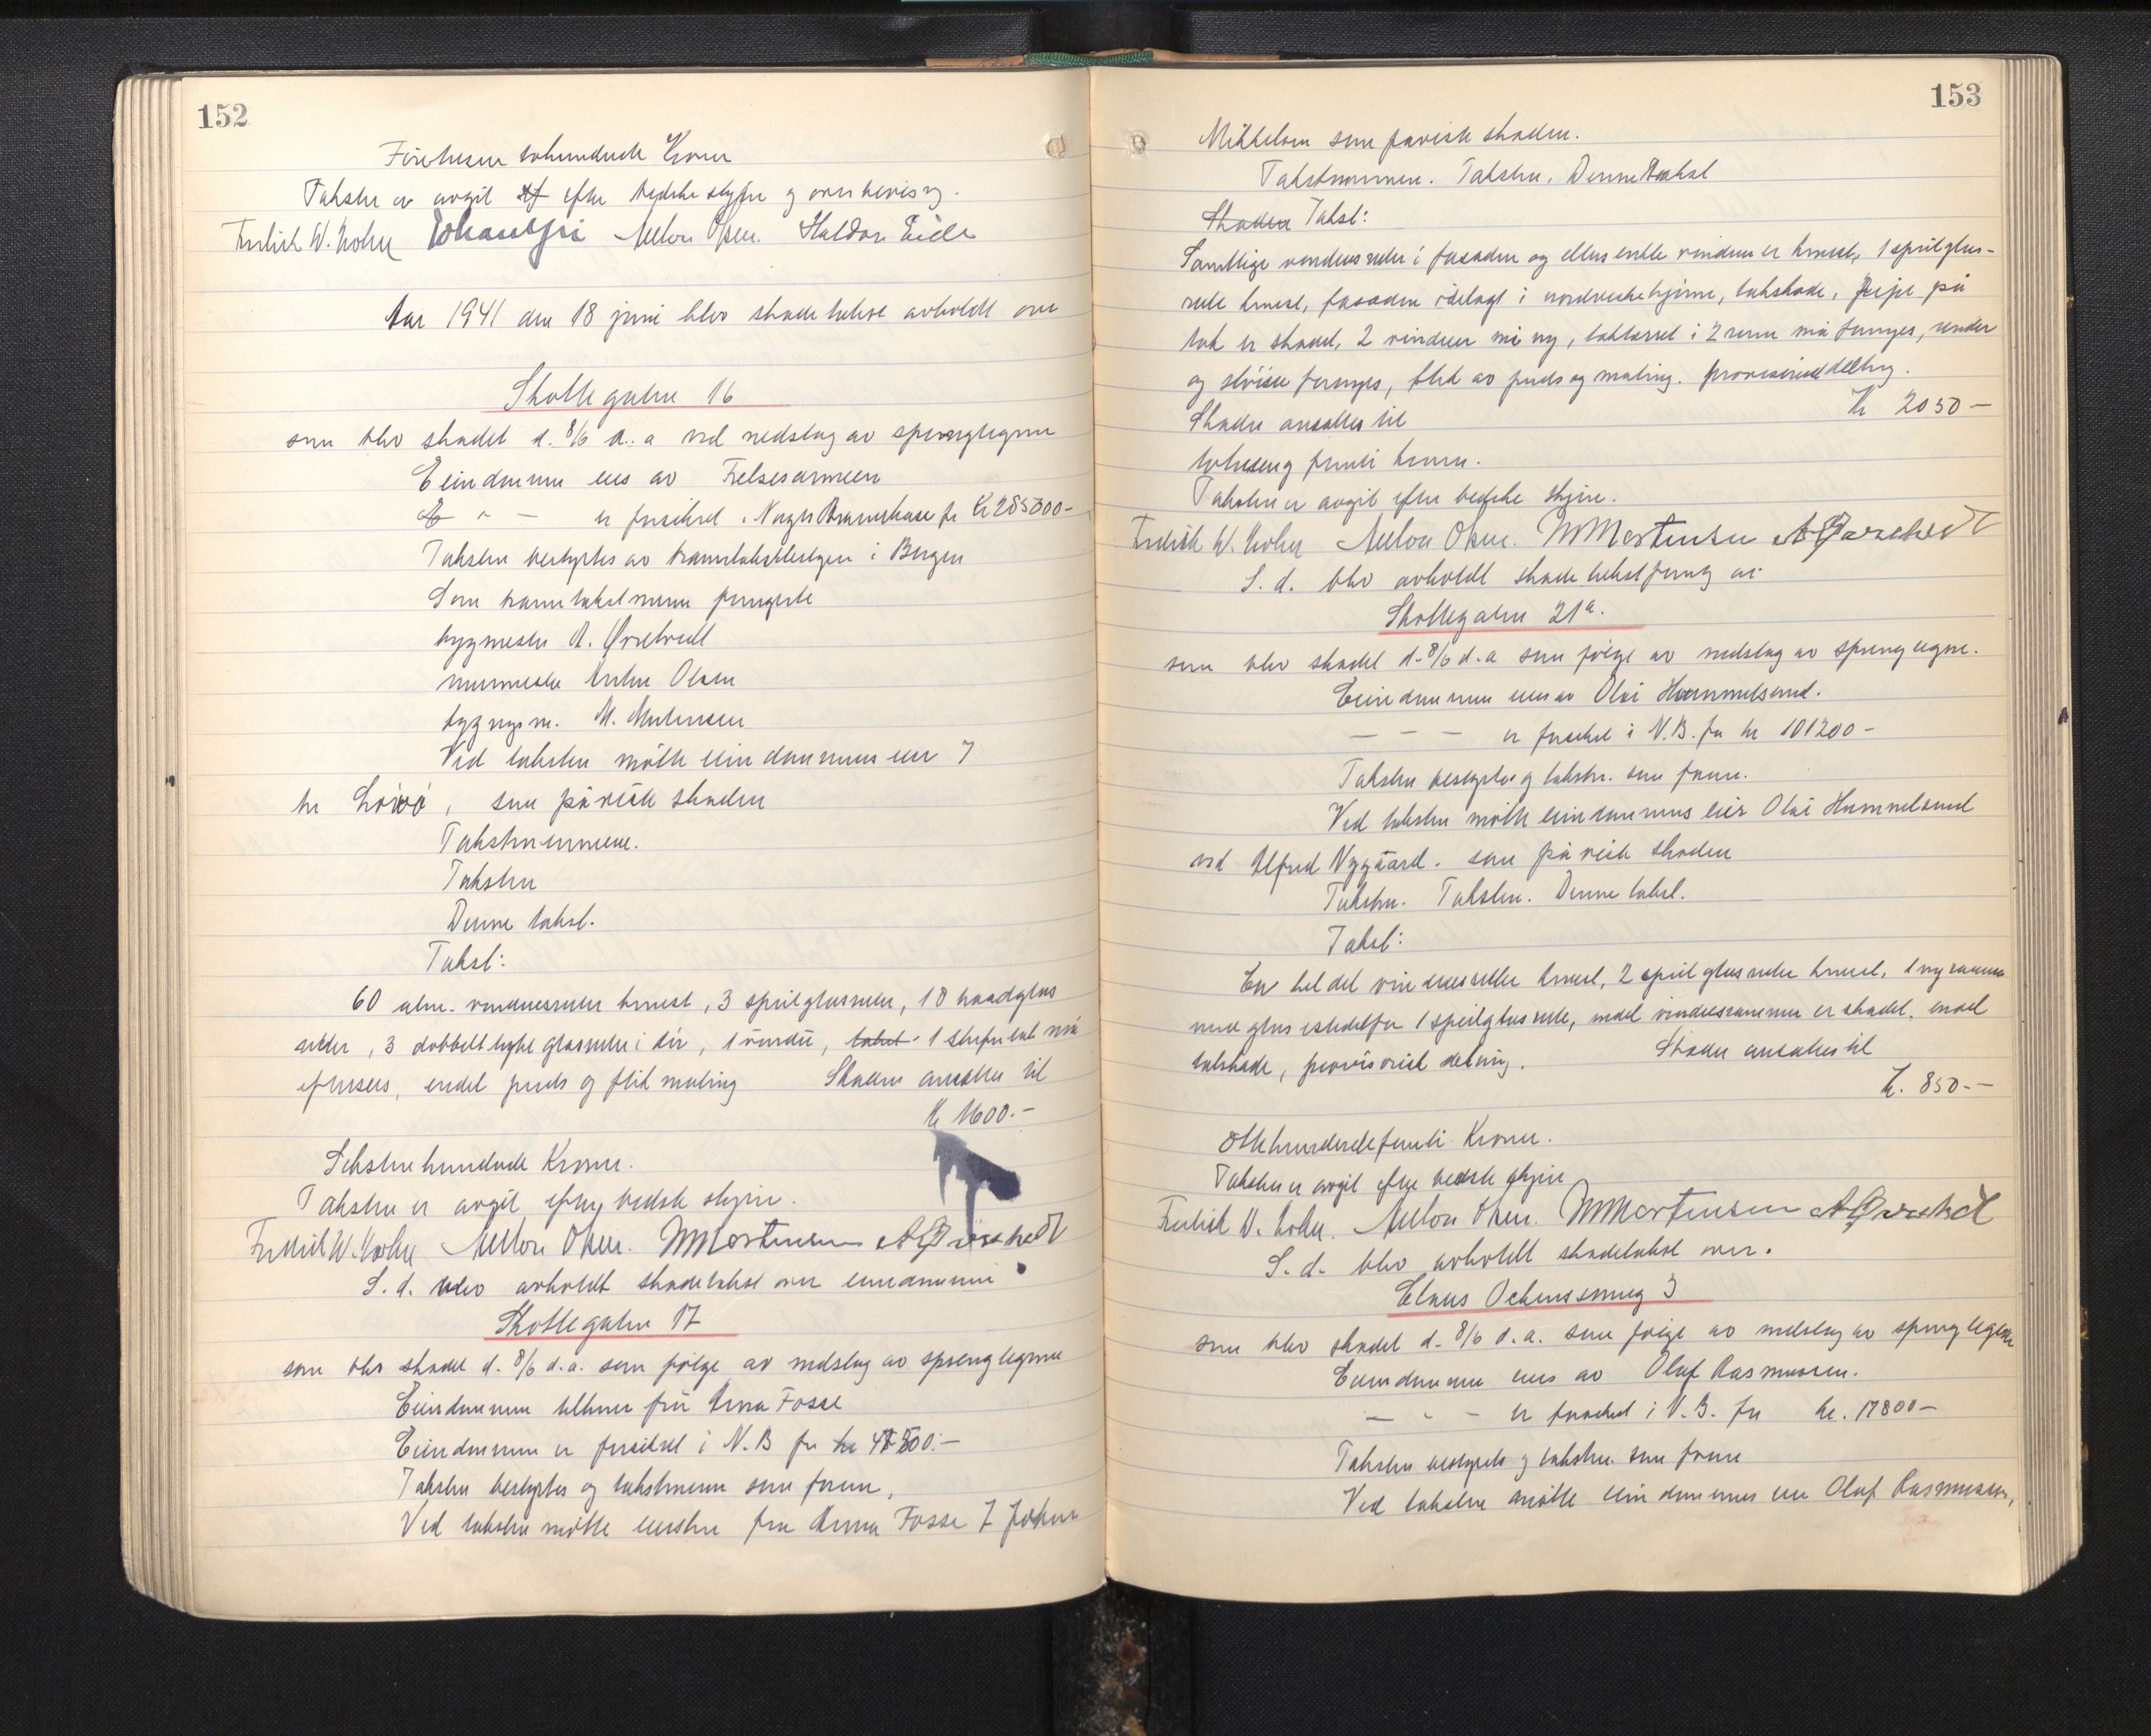 152
Firetusen tohundrede Kroner
Taksten er avgit efter bedste skjøn og overbevisning.
Fredrik W. Anton Olsen. Haldor Eide
Aar 1941 den 18 juni blev skadetakst avholdt over
Skottegaten 16
som blev skadet d. 8/6 d. a ved nedslag av sprenglegeme
Eiendommen eies av Frelsesarmeen
" — er forsikret i Norges Brannkasse for Kr 285000-
Taksten bestyrtes av branntakstbestyrer i Bergen
Som branntakstmenn fungerte
bygmester A. Ørstvedt
murmester Anton Olsen
bygmgm. M. Mortensen
Ved taksten møtte eiendommens eier
hr , som påviste skaden
Takstmennene.
Taksten
Denne takst.
Takst:
60 alm. vinduesruter knust, 3 speilglasruter, 10 traadglas
ruter, 3 dobbelt tykke glasruter i dør, 1 vindu, takst 1 skifertak må
efterses, endel puds og flik maling Skaden ansættes til
Kr 1600.-
Sekstenhundrede Kroner.
Taksten er avgit efter bedste skjøn.
Fredrik W. Anton Olsen. M Mortensen A
S. d. blev avholdt skadetakst over eiendommen
Skottegaten 17
som blev skadet d. 8/6 d.a. som følge av nedslag av sprenglegeme
Eiendommen tilhører frü Anna Fosse
Eiendommen er forsikret i N.B for kr 500.-
Taksten bestyrtes og takstmenn som foran,
Ved taksten møtte eiersken fru Anna Fosse
153
Mikkelsen som paviste skaden.
Takstmennen. Taksten. Denne Takst
Skaden Takst:
Samtlige vinduesruter i fasaden og ellers enkle vinduer er knust, 1 speilglas-
rute knust, fasaden ødelagt i nordvestre hjørne, takskade, pipe på
tak er skadet, 2 vinduer må ny, i 2 rum må fornyes, under
og fornyes, flik av puds og maling. provisorisk dekking.
Skaden ansættes til Kr 2050-
totusenog femti kroner.
Taksten er avgit efter bedste skjøn.
Fredrik W. Anton Olsen. M Mortensen A
S. d. blev avholdt skadetakstforretn. av
Skottegaten 21a.
som blev skadet d. 8/6 d.a som følge av nedslag av sprenglegeme.
Eiendommen eies av Olai Hummelsund.
— — — er forsikret i N.B. for kr 101200-
Taksten bestyrtes og takstm. som foran.
Ved taksten møtte eiendommens eier Olai Hummelsund
ved Alfred Nygaard. som påviste skaden
Takstm. Taksten. Denne takst.
Takst:
En hel del vinduesruter knust, 2 speilglasruter knust, 1 ny ramme
med glas istedetfor 1 speilglasrute, endel vinduesrammer er skadet, endel
takskade, provisorisk dekning. Skaden ansættes til
Kr. 850.-
Ottehundredefemti Kroner.
Taksten er avgit efter bedste skjøn
Fredrik W. Anton Olsen. M Mortensen A
S. d. blev avholdt skadetakst over.
Claus Ockenssmug 3
som blev skadet d. 8/6 d.a. som følge av nedslag av sprenglegeme
Eiendommen eies av Oluf Rasmussen.
— - - er forsikret i N.B. for kr. 17800-
Taksten bestyrtes og takstm. som foran
Ved taksten møtte eiendommens eier Oluf Rasmussen,